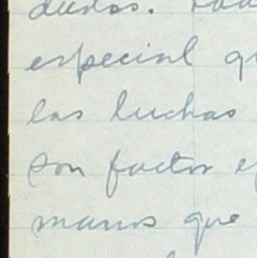 dudas.
especial
las luchas
son factor
manos que